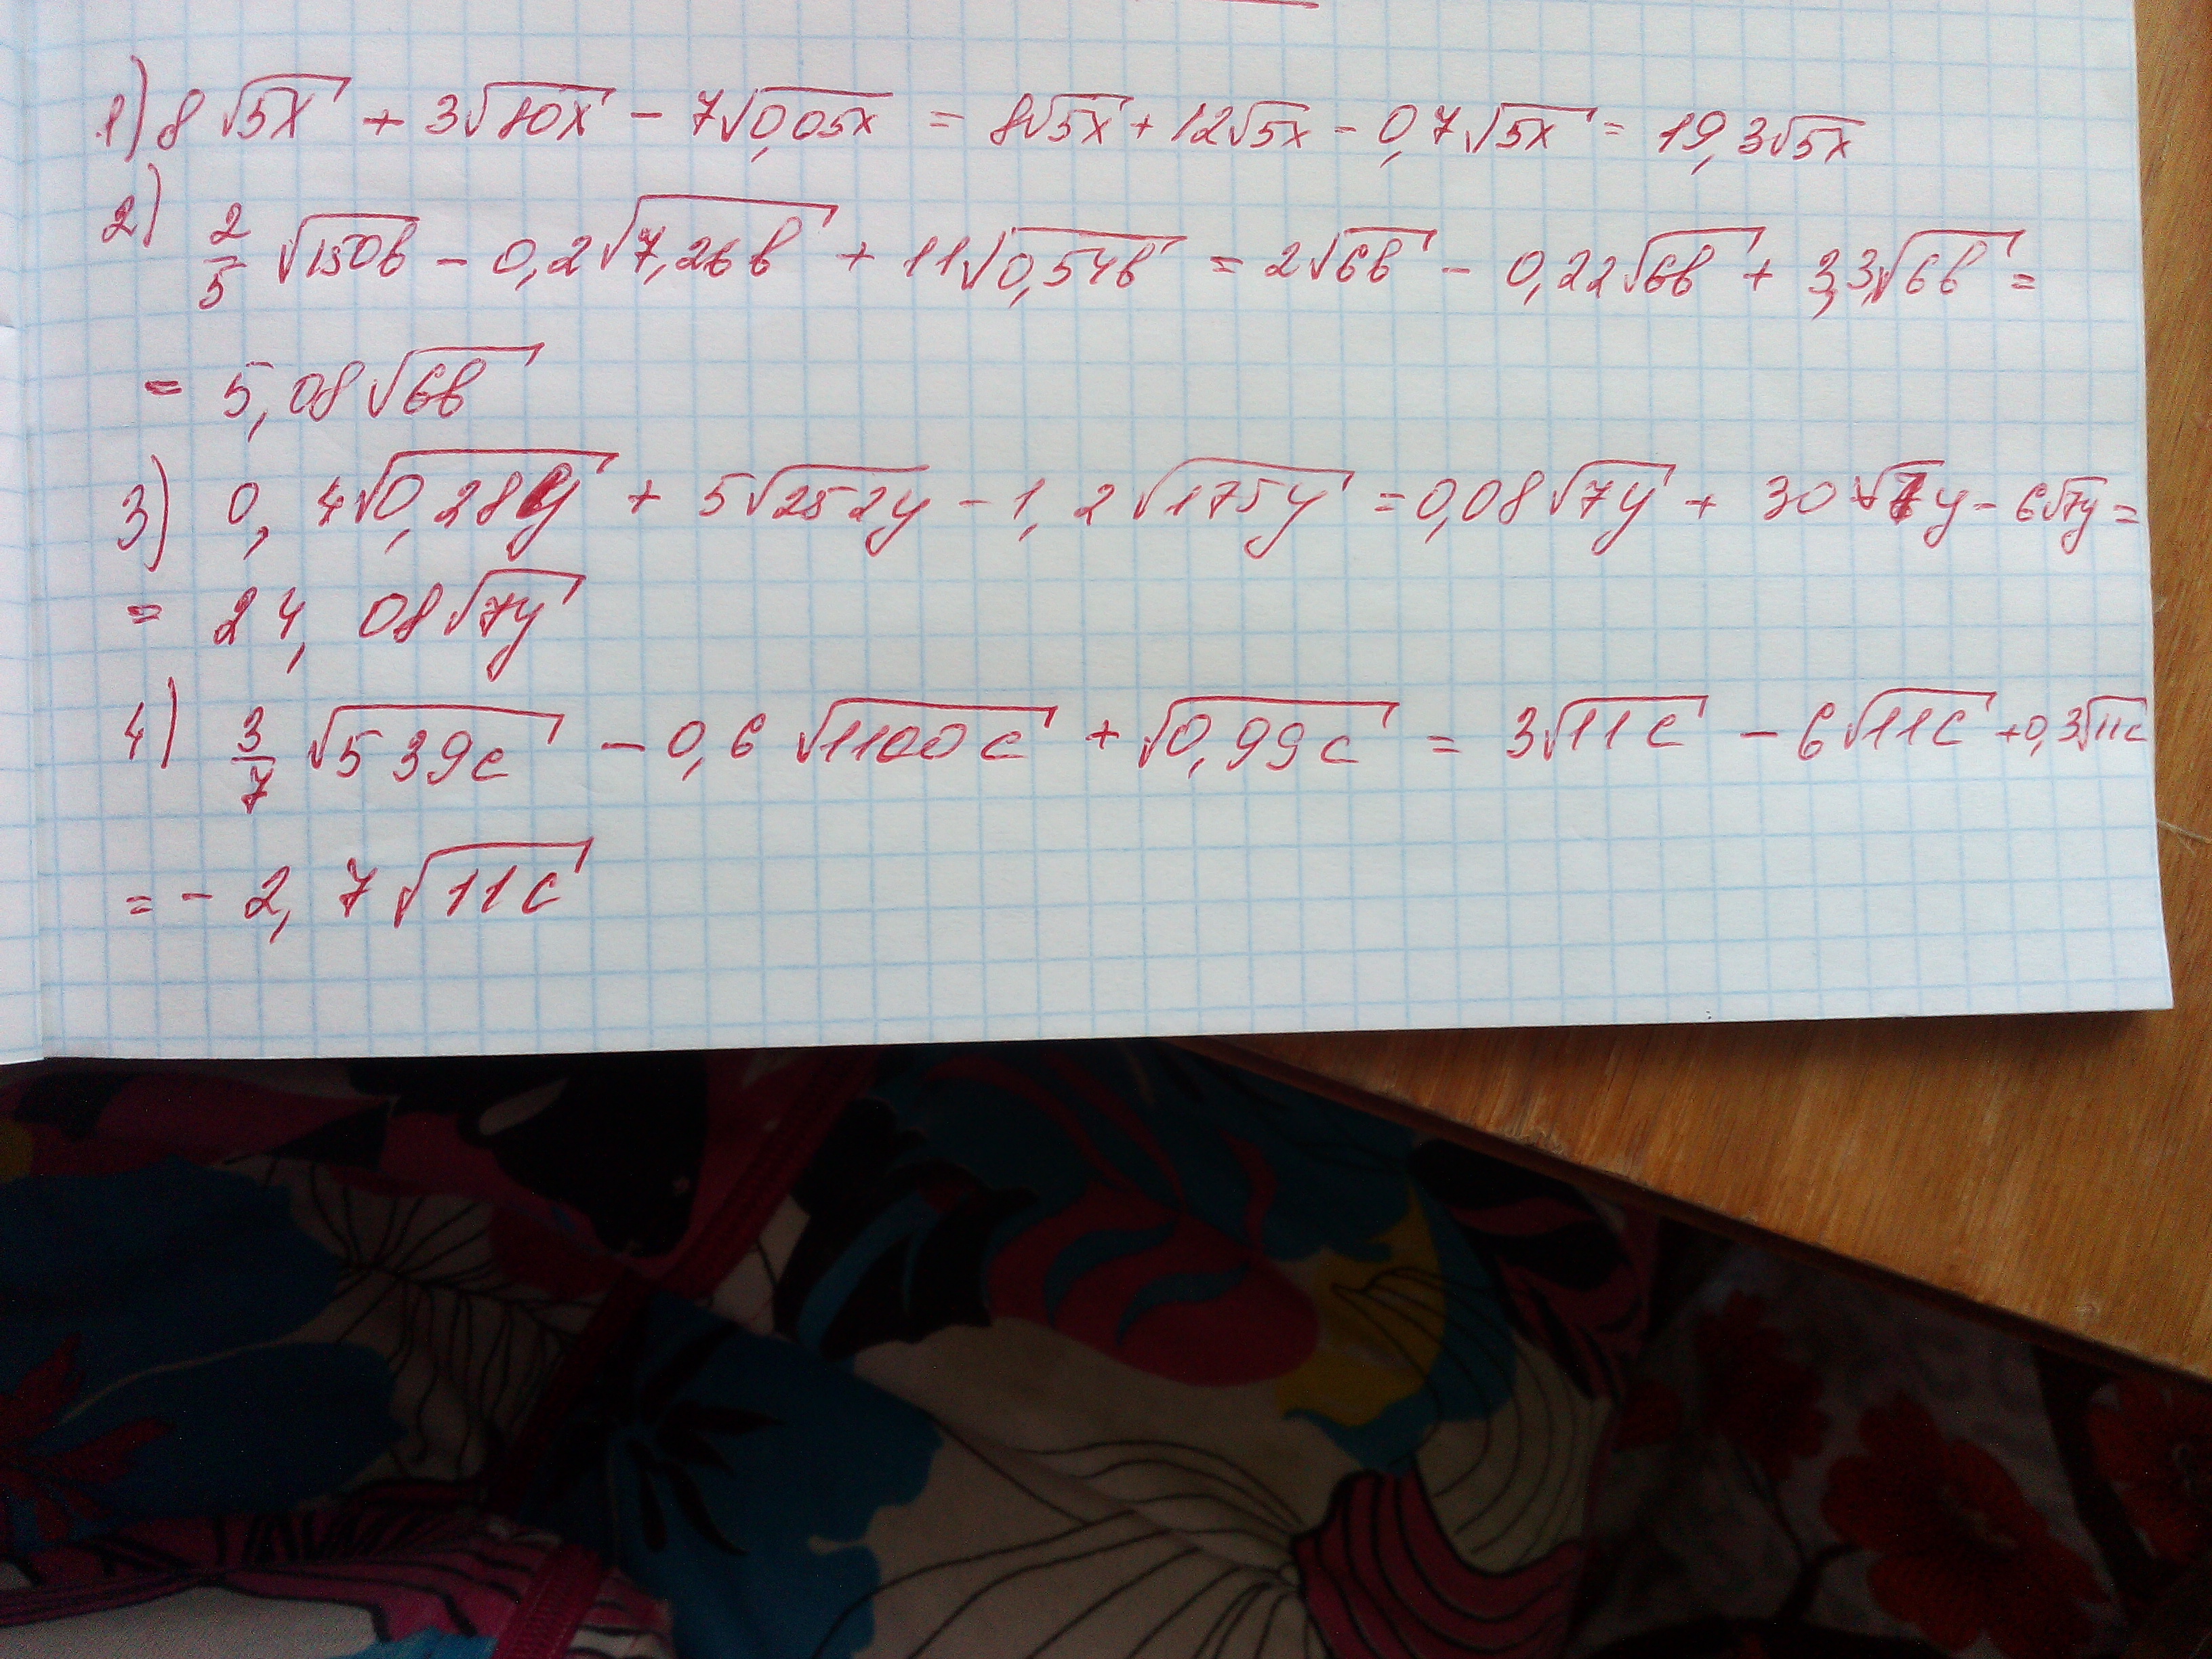 1) 8√5x + 3√80x − 7√0,05x = 8√5x + 12√5x − 0,7√5x = 19,3√5x
2) 2/5 √150b − 0,2√7,26b + 11√0,54b = 2√6b − 0,22√6b + 3,3√6b =
= 5,08√6b
3) 0,4√0,28y + 5√252y − 1,2√175y = 0,08√7y + 30√7y − 6√7y =
= 24,08√7y
4) 3/7 √539c − 0,6√1100c + √0,99c = 3√11c − 6√11c + 0,3√11c
= − 2,7√11c